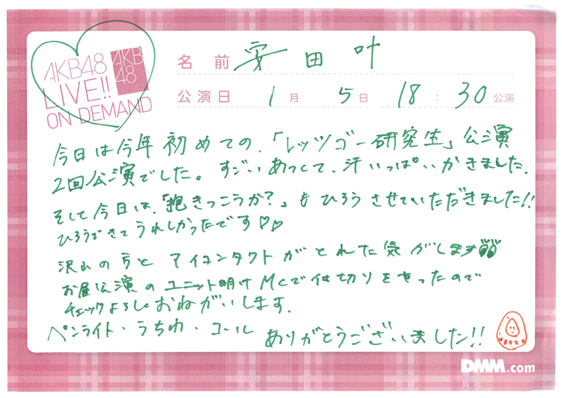 AKB48
LIVE!!
ON DEMAND
AKB
48
名前 安田叶
公演日 1月 5日 18:30公演
今日は今年初めての、「レッツゴー研究生」公演
2回公演でした。すごいあつくて、汗いっぱいかきました。
そして今日は、「抱きつこうか?」をひろうさせていただきました!!
ひろうできてうれしかったです♡♡
沢山の方とアイコンタクトがとれた気がします
お昼公演のユニット明けMCで仕切りをやったので
チェックよろしくおねがいします。
ペンライト・うちわ・コール ありがとうございました!!
DMM.com